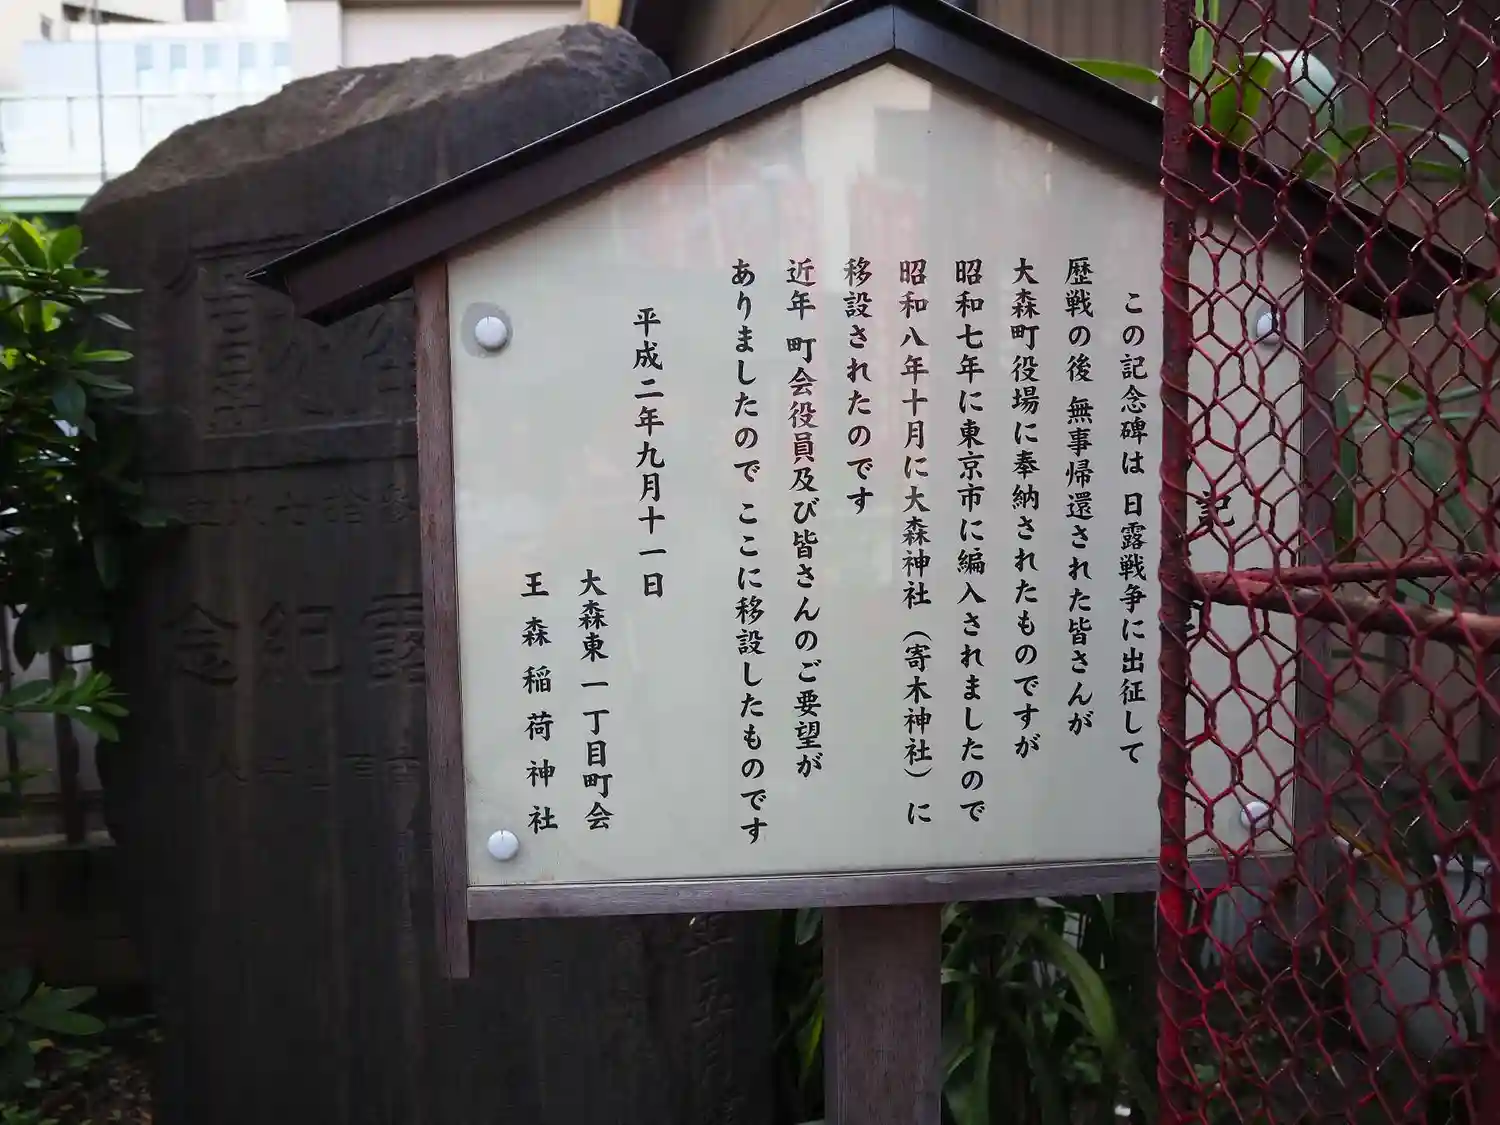 記
この記念碑は 日露戦争に出征して
歴戦の後 無事帰還された皆さんが
大森町役場に奉納されたものですが
昭和七年に東京市に編入されましたので
昭和八年十月に大森神社（寄木神社）に
移設されたのです
近年 町会役員及び皆さんのご要望が
ありましたので ここに移設したものです
平成二年九月十一日
大森東一丁目町会
王森稲荷神社
露
紀
念